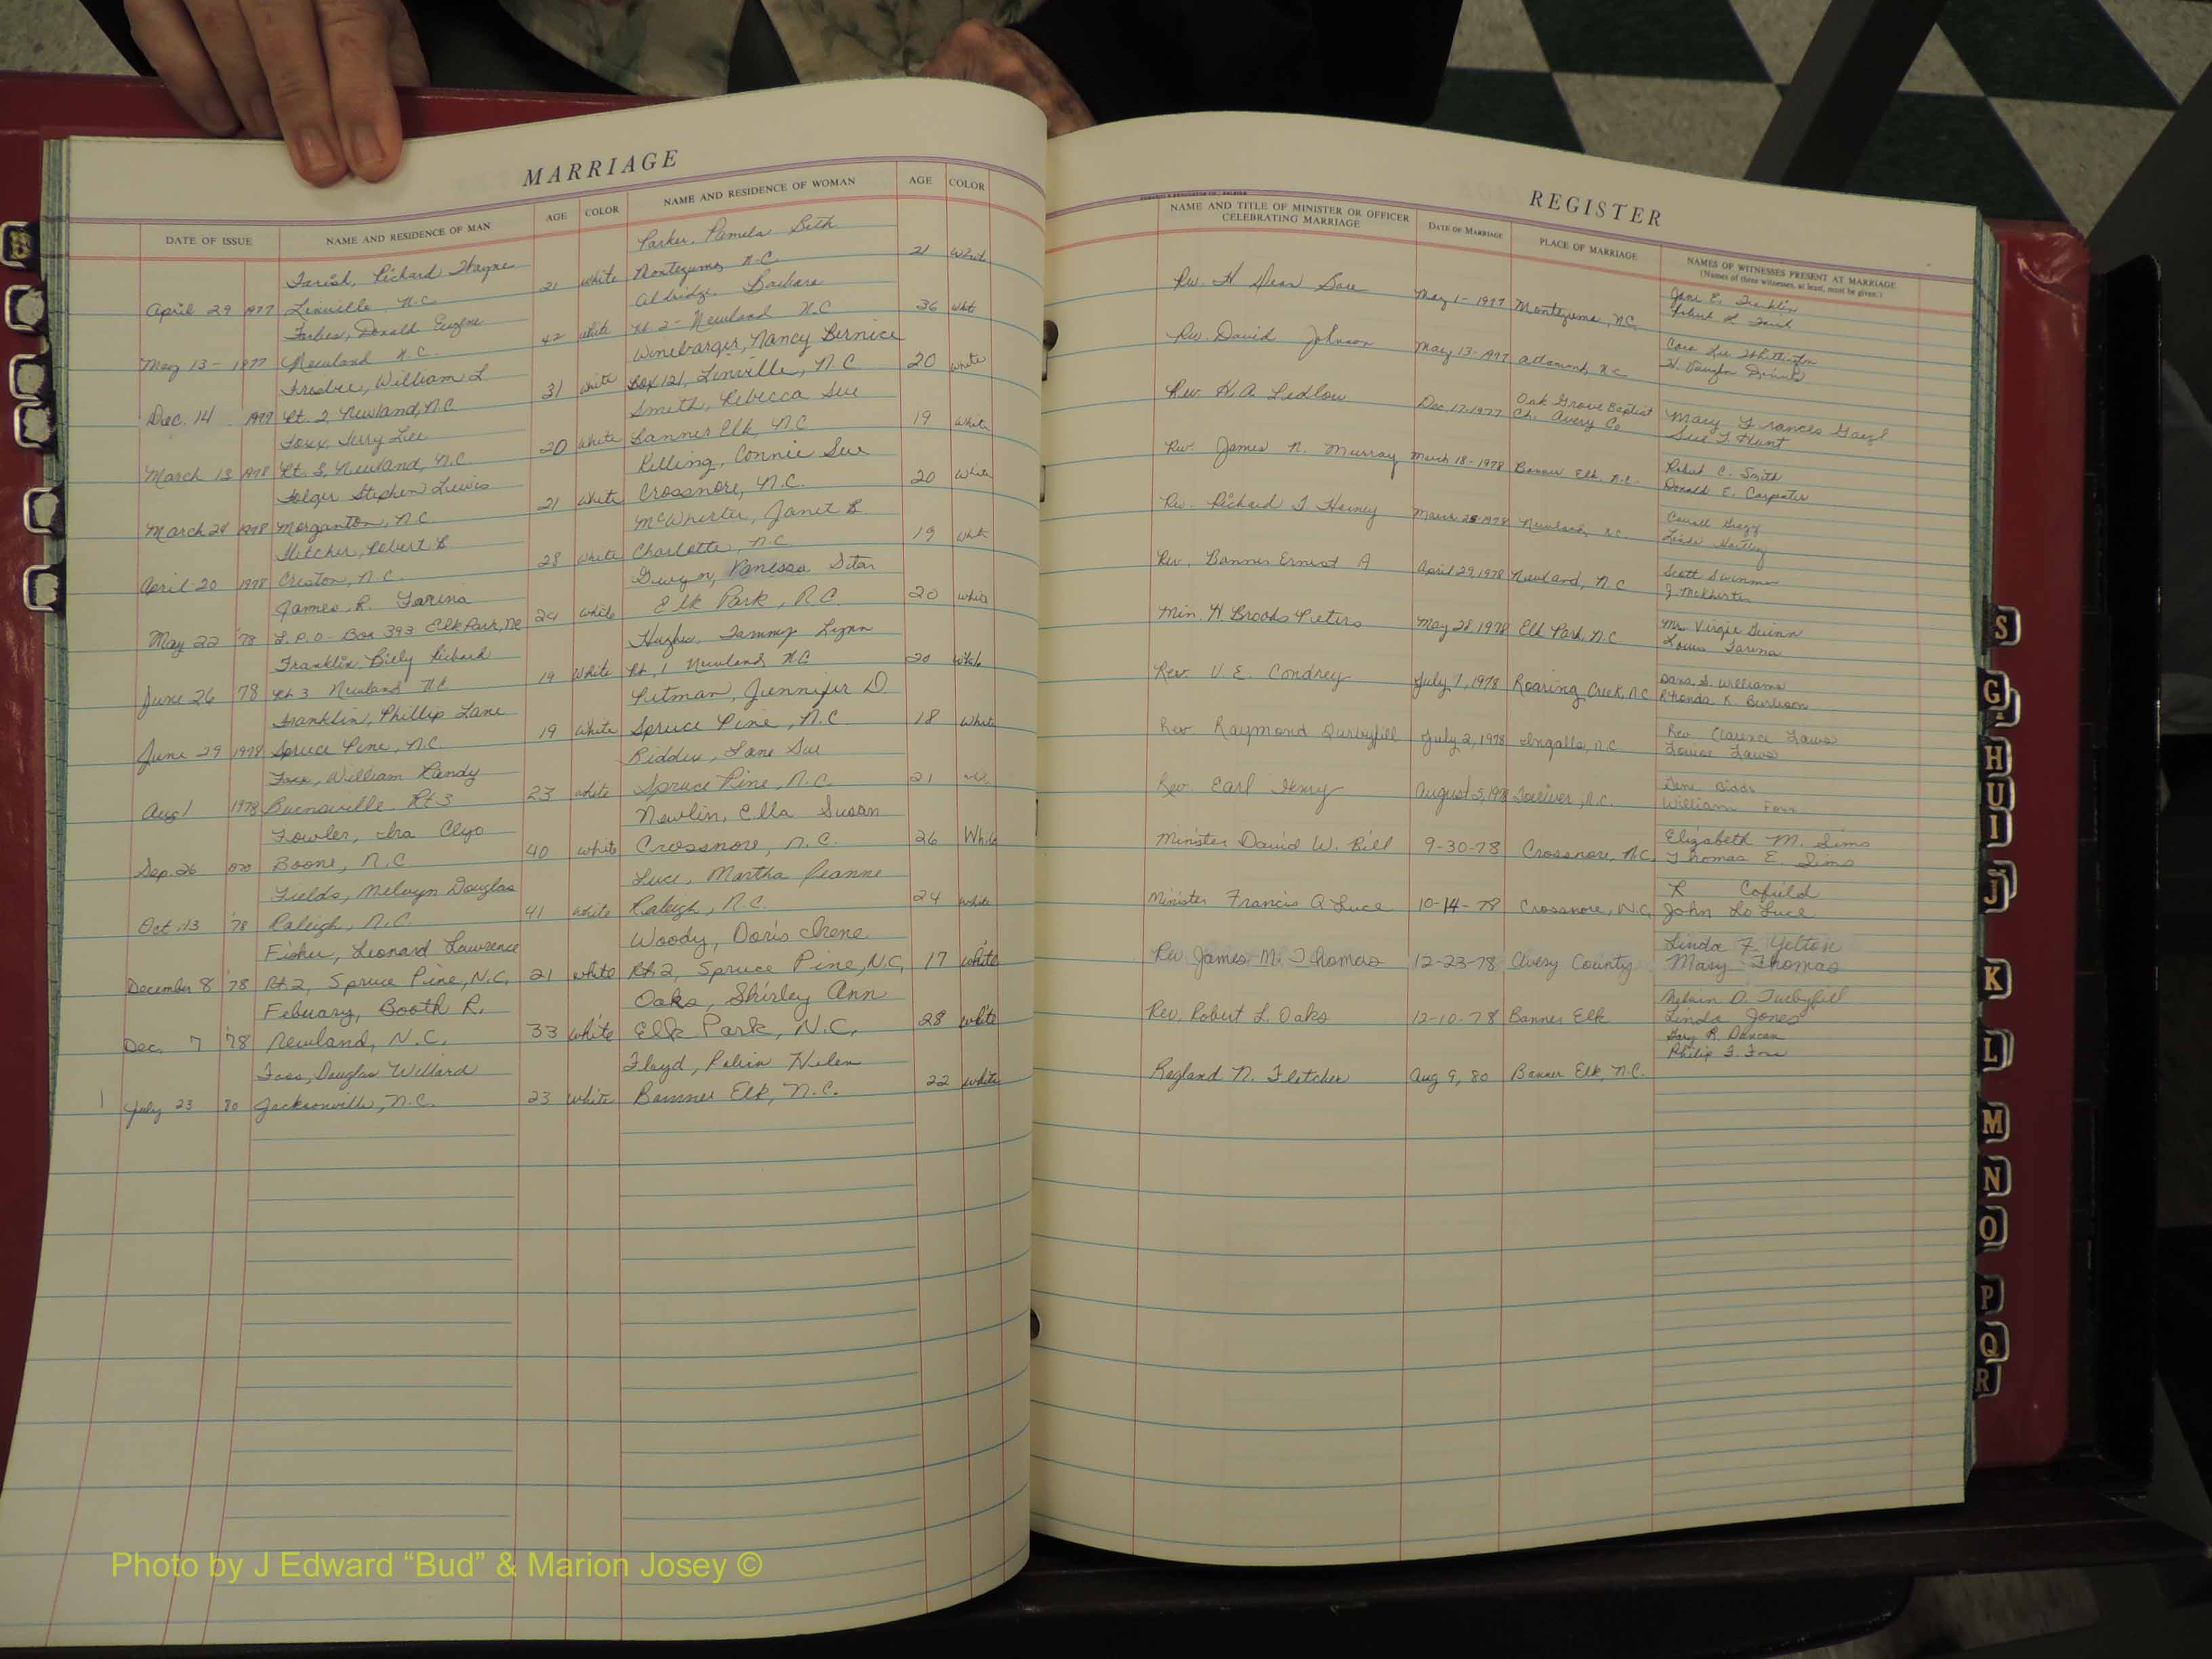 MARRIAGE
DATE OF ISSUE NAME AND RESIDENCE OF MAN AGE COLOR NAME AND RESIDENCE OF WOMAN AGE COLOR
Parker, Pamela Beth
Farish, Richard Wayne 21 white Montezuma, N.C. 21 White
April 29 1977 Linville N.C. Aldridge Barbara
Forbes, Donald Eugene 42 white Rt 2 - Newland N.C 36 white
May 13 - 1977 Newland N.C. Winebarger, Nancy Bernice
Frisbee, William L 31 white Box 121, Linville, N.C 20 white
Dec. 14 1977 Rt. 2, Newland, N.C. Smith, Rebecca Sue
Foxx, Terry Lee 20 white Banner Elk, N.C 19 white
March 13 1978 Rt. 3, Newland, N.C. Connie Sue
Folger Stephen Lewis 21 White Crossnore, N.C. 20 White
March 28 1978 Morganton, N.C. McWhirter, Janet B.
Fletcher, Robert B. 28 white Charlotte, N.C. 19 white
April 20 1978 Creston, N.C. Gwyn, Vanessa
James R. Farina 24 white Elk Park, N.C. 20 white
May 22 '78 P.O. Box 393 Elk Park, NC Hughes, Tammy Lynn
Franklin Billy Richard 19 White Rt. 1 Newland NC 20 white
June 26 78 Rt 3 Newland NC Pitman, Jennifer D
Franklin, Phillip Lane 19 white Spruce Pine, N.C. 18 white
June 29 1978 Spruce Pine, N.C. Biddix, Jane Sue
Foxx, William Randy 23 white Spruce Pine, N.C. 21
Aug 1 1978 Burnsville Rt 3 Newlin, Ella Susan
Fowler, Ira Clyo 40 white Crossnore, N.C. 26 White
Sep. 26 Boone, N.C Luce, Martha Jeanne
Fields, Melvyn Douglas 41 white Raleigh, N.C. 24 white
Oct. 13 '78 Raleigh, N.C. Woody, Doris Irene
Fisher, Leonard Lawrence
December 8 '78 Rt. 2, Spruce Pine, N.C. 21 white Rt. 2, Spruce Pine, N.C. 17 white
Febuary, Booth R. Oaks, Shirley Ann
Dec. 7 '78 Newland, N.C. 33 white Elk Park, N.C. 28 white
Foss, Douglas Willard Floyd, Robin Helen
1 July 23 80 Jacksonville, N.C. 23 white Banner Elk, N.C. 22 white
REGISTER
NAME AND TITLE OF MINISTER OR OFFICER CELEBRATING MARRIAGE DATE OF MARRIAGE PLACE OF MARRIAGE NAMES OF WITNESSES PRESENT AT MARRIAGE
(Names of three witnesses, at least, must be given.)
Jane E. Franklin
Rev. H Dean May 1 - 1977 Montezuma, N.C. Robert H. Farish
Cora Lee Whittington
Rev. David Johnson May 13 - 1977 Altamont, N.C. H. Vaughn
Rev. H.A. Ledlow Dec 17-1977 Oak Grove Baptist
Ch. Avery Co Mary Frances
Sue F Hunt
Rev. James N. Murray March 18 - 1978 Banner Elk, N.C. Robert C. Smith
Donald E. Carpenter
Rev. Richard T. March 28-1978 Newland, N.C. Carroll Gragg
Linda Hartley
Rev. Banner Ernest A April 29, 1978 Newland, N.C Scott Swinney
J. McWhirter
Min. H Brooks Pieters May 28 1978 Elk Park, N.C Mrs Virgie Guinn
Louis Farina
Rev. V. E. Condrey July 7, 1978 Roaring Creek, N.C Dana S. Williams
Rhonda K. Burleson
Rev Raymond Turbyfill July 2, 1978 Ingalls, N.C Rev. Clarence Laws
Louise Laws
Rev. Earl Henry August 5, 1978 Toliver, N.C. Gene Biddix
William Foxx
Minister David W. Bill 9-30-78 Crossnore, N.C. Elizabeth M. Sims
Thomas E. Sims
Minister Francis Q Luce 10-14-78 Crossnore, N.C. R Cofield
John Lo Luce
Rev James M. Thomas 12-23-78 Avery County Linda F. Yelton
Mary Thomas
D. Turbyfill
Rev. Robert L. Oaks 12-10-78 Banner Elk Linda Jones
Gary R. Duncan
Philip F. Foss
Ragland N. Fletcher Aug 9, 80 Banner Elk, N.C.
S
G
H
U
I
J
K
L
M
N
O
P
Q
R
Photo by J Edward “Bud” & Marion Josey ©